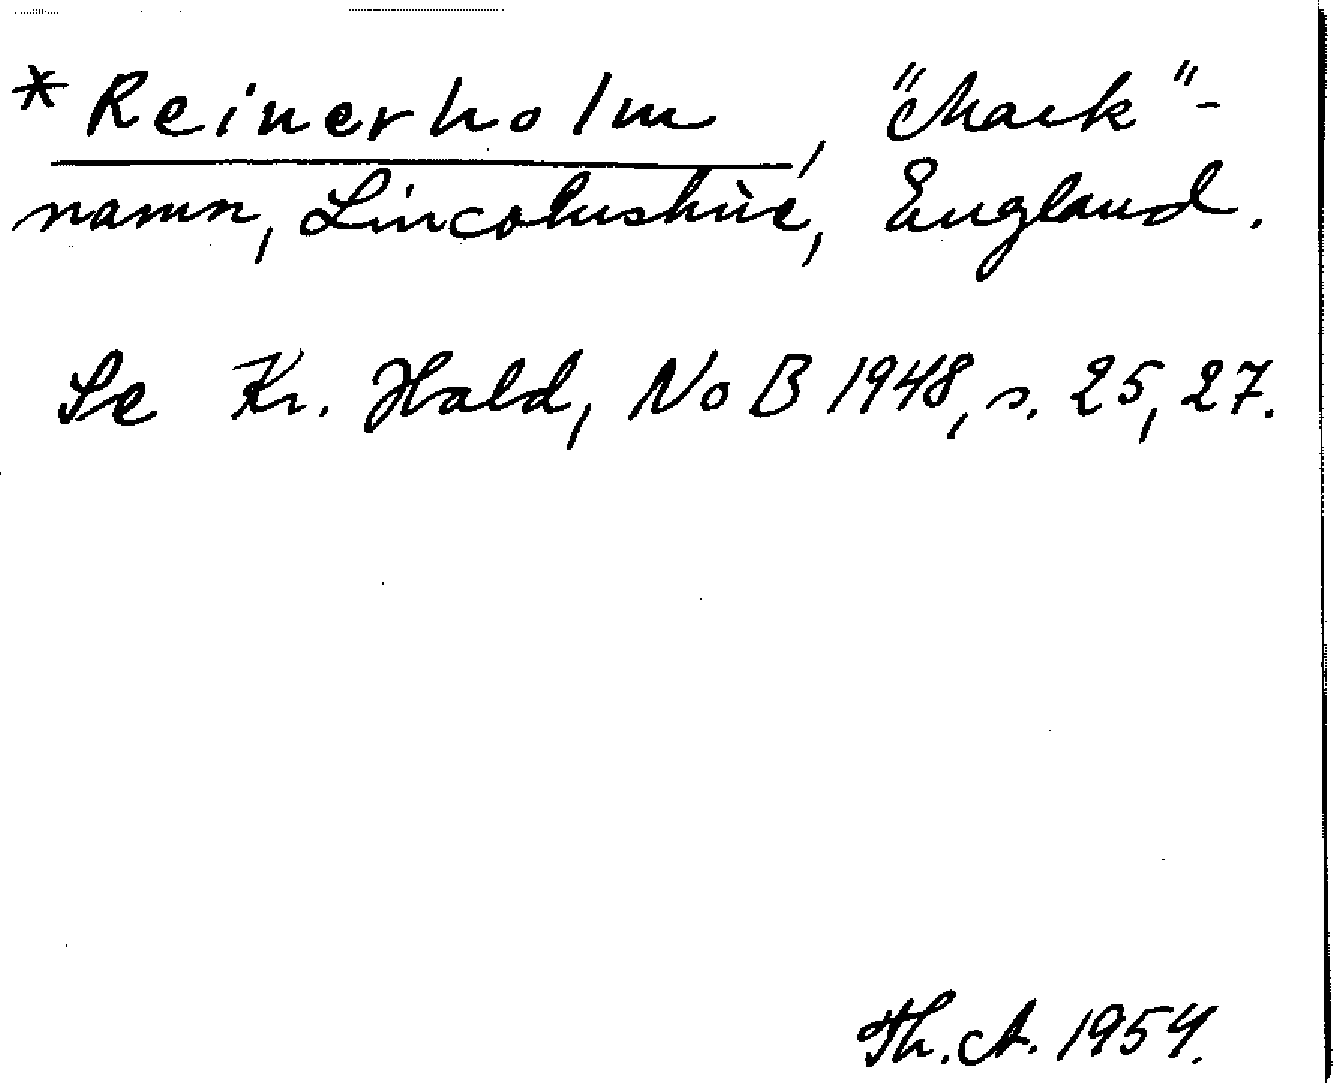 *Reinerholm, "Mark"-
namn, Lincolnshire, England.
Se Kr. Hald, NoB 1948, s. 25, 27.
Th. A. 1954.